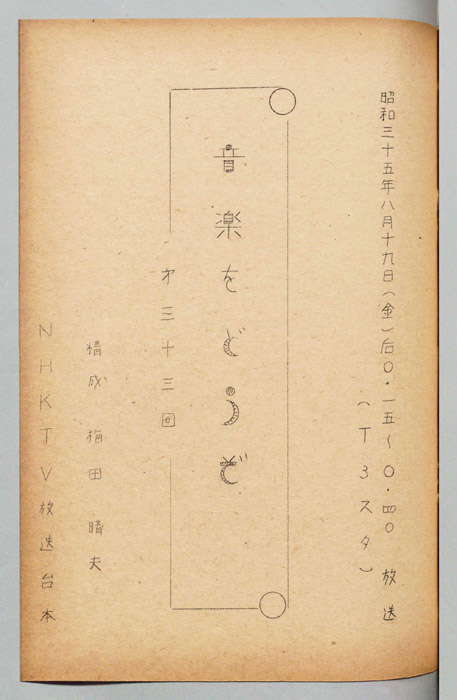 昭和三十五年八月十九日(金)后〇・一五〜〇・四〇 放送
(T3スタ)
音楽をどうぞ
才三十三回
構成 梅田晴夫
NHKTV放送台本